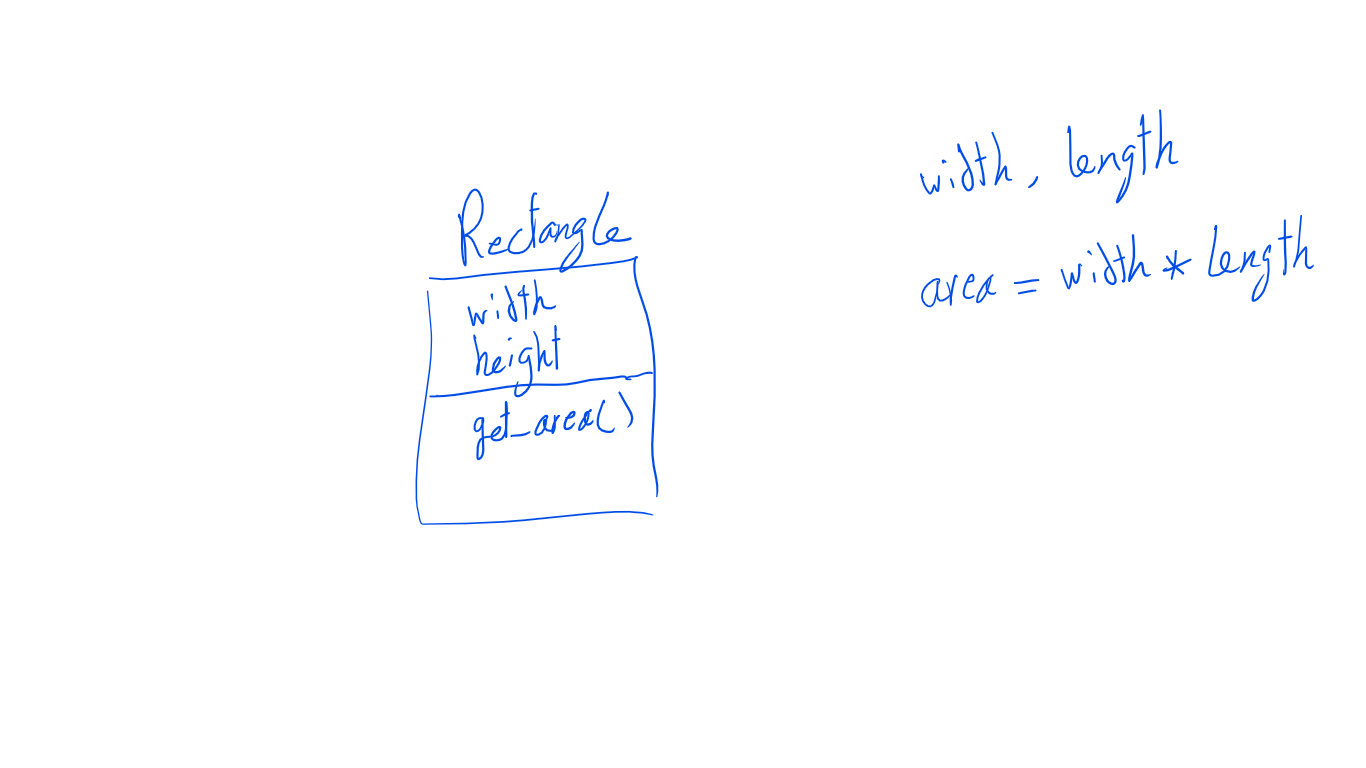 Rectangle
width
height
get_area()
width, length
area = width * length